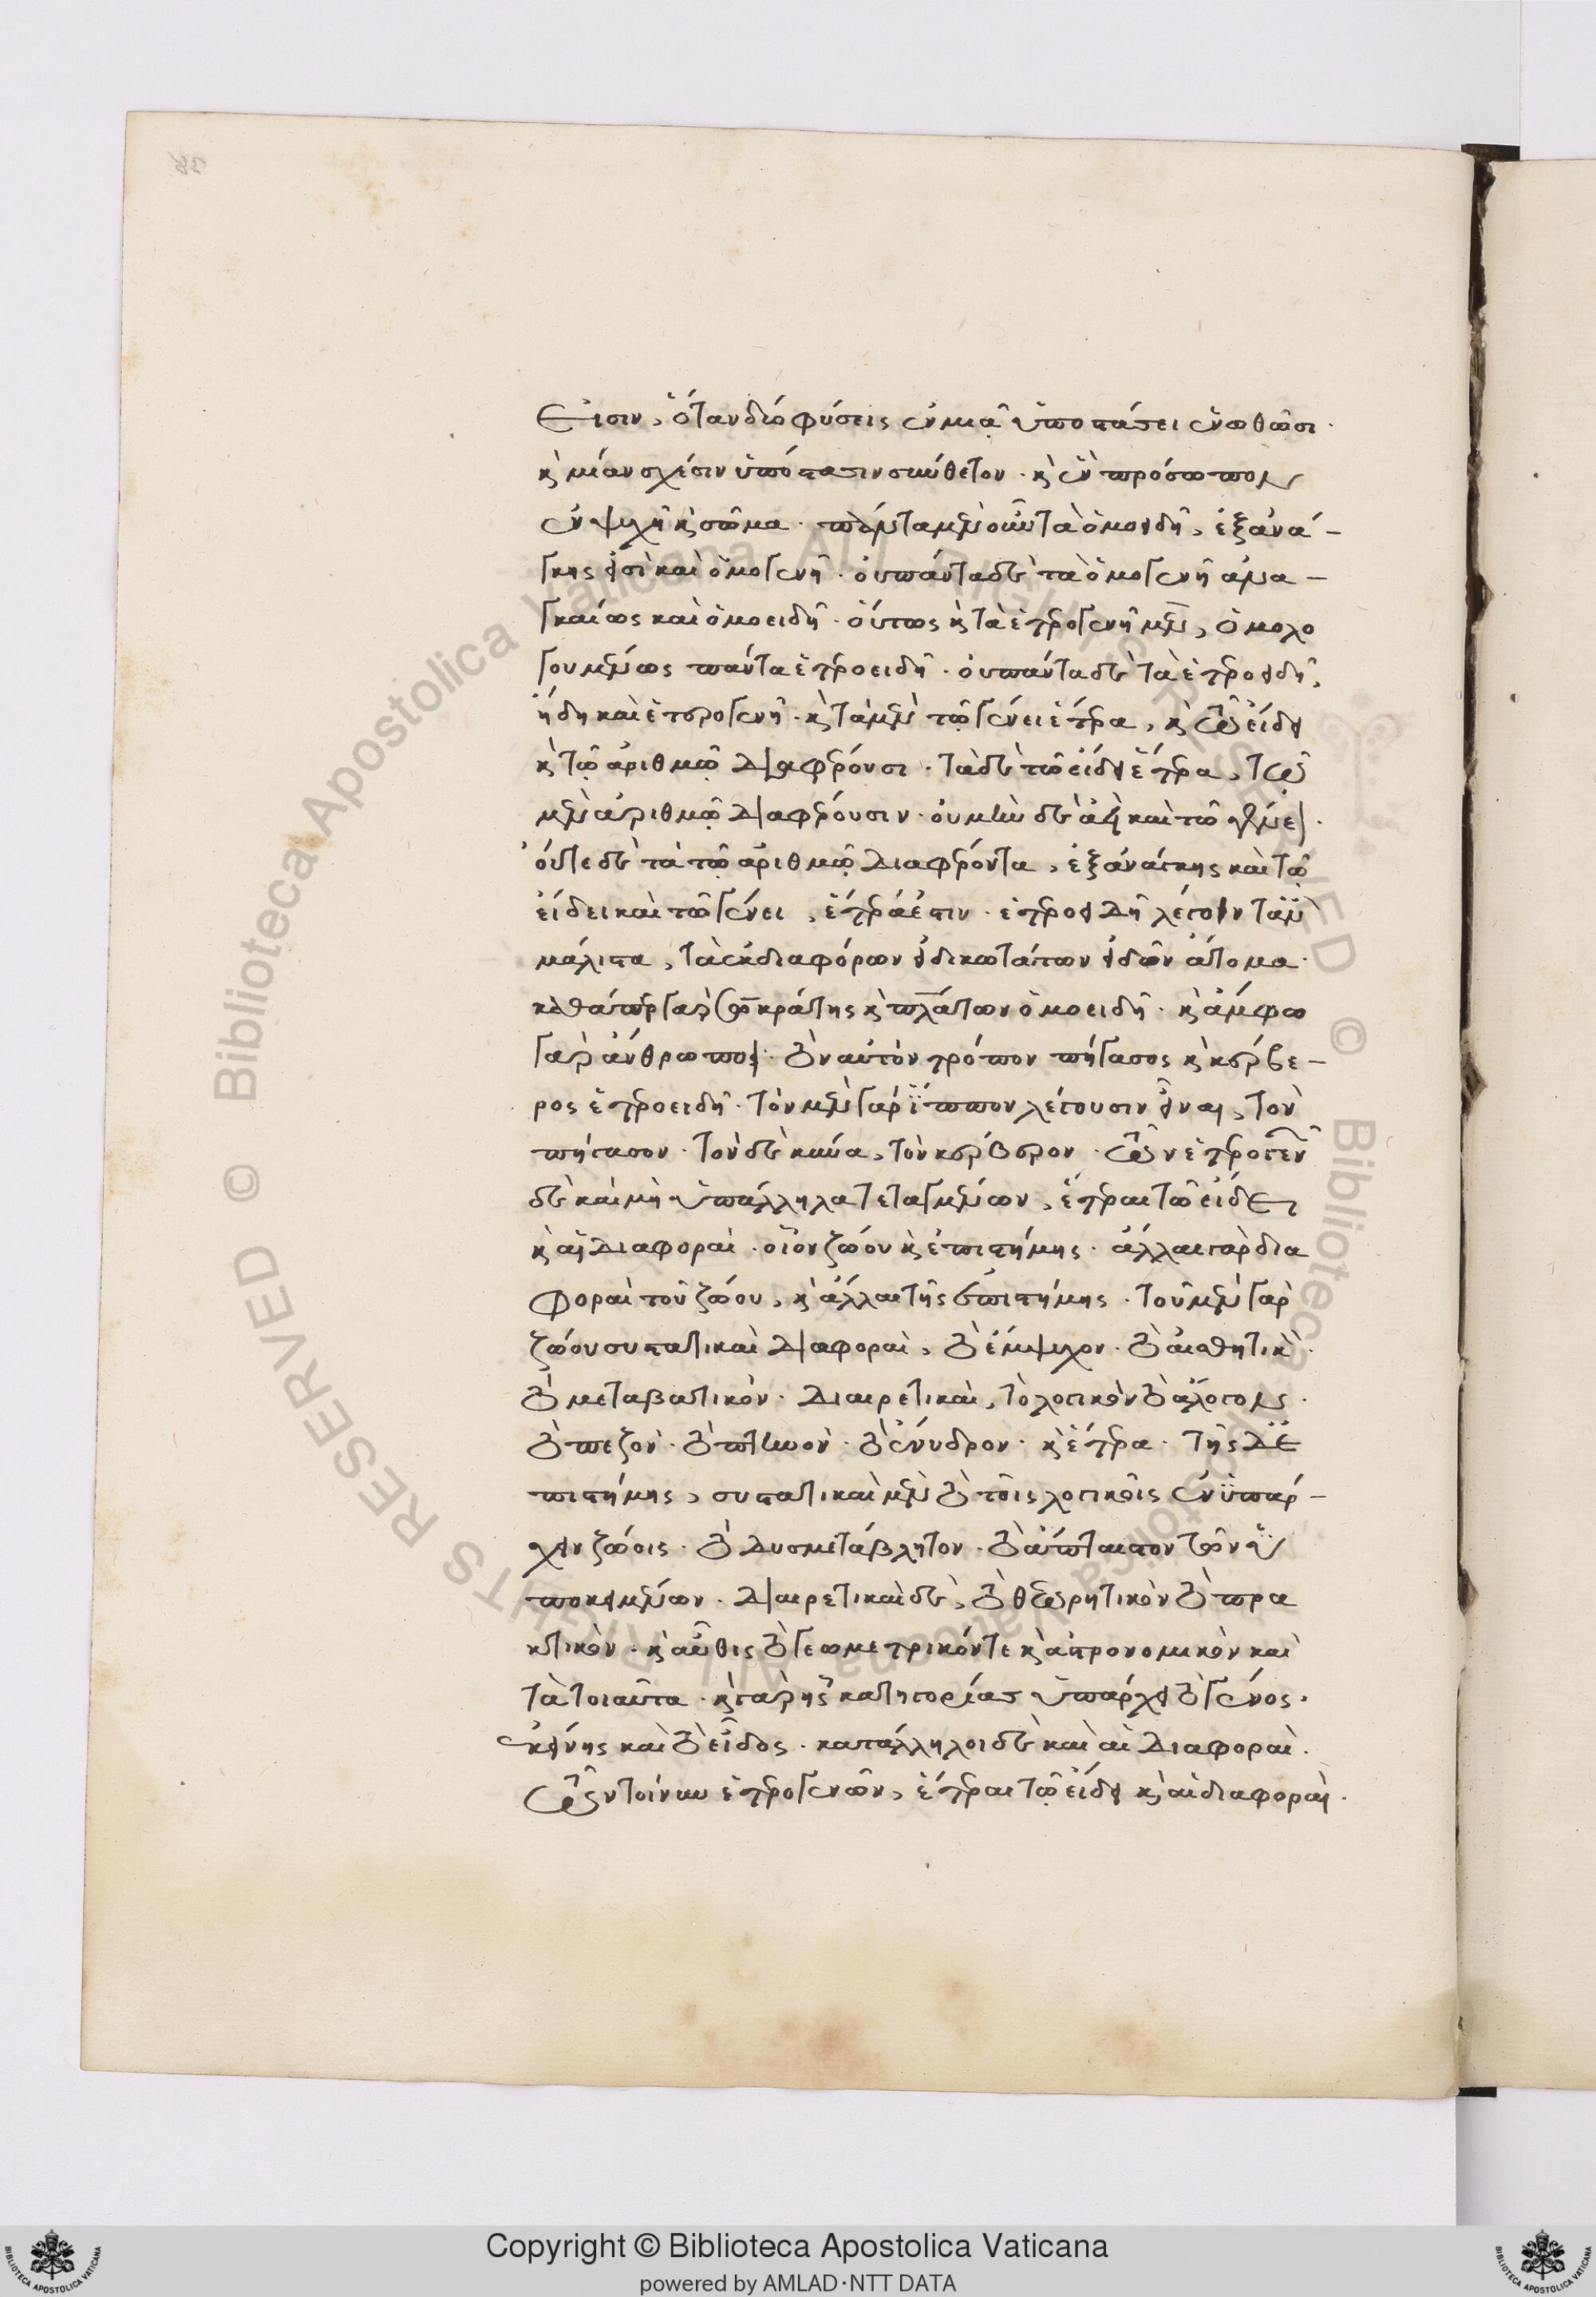 εἰσιν, ὅταν δύο φύσεις ἐν μιᾷ ὑποστάσει ἑνωθῶσι·
κ̀ μίαν σχέσιν ὑπόστασιν σύνθετον· κ̀ ἓν πρόσωπον
ἐν ψυχῆ κ̀ σῶμα· πάντα μὲν οὖν τὰ ὁμοειδῆ, ἐξ ἀνά-
γκης εἰσὶ καὶ ὁμογενῆ· οὐ πάντα δὲ τὰ ὁμογενῆ ἀνα-
γκαίως καὶ ὁμοειδῆ· οὕτως κ̀ τὰ ἑτερογενῆ μὲν, ὁμολο
γουμένως πάντα ἑτεροειδῆ· οὐ πάντα δὲ τὰ ἑτεροειδῆ,
ἤδη καὶ ἑτερογενῆ· κ̀ τὰ μὲν τῷ γένει ἕτερα, κ̀ τῷ εἴδει
κ̀ τῷ ἀριθμῷ διαφέρουσι· τὰ δὲ τῶ εἴδει ἕτερα, τῷ
μὲν ἀριθμῷ διαφέρουσιν· οὐ μὴν δὲ ἀεὶ καὶ τῶ γένει·
οὔτε δὲ τὰ τῷ ἀριθμῷ διαφέροντα, ἐξ ἀνάγκης καὶ τῷ
εἴδει καὶ τῶ γένει, ἕτερά ἐστιν· ἑτεροειδῆ λέγειν τὰ μὲν
μάλιστα, τὰ ἐκ διαφόρων εἰδικωτάτων εἰδῶν ἄτομα·
καθάπερ γὰρ σωκράτης κ̀ πλάτων ὁμοειδῆ· κ̀ ἄμφω
γὰρ ἄνθρωποι· τὸν αὐτὸν τρόπον πήγασος κ̀ κέρβε-
ρος ἑτεροειδῆ· τὸν μὲν γὰρ ἵππον λέγουσιν εἶναι, τὸν
πήγασον· τὸν δὲ κύνα, τὸν κέρβερον· τῶν ἑτερογενῶν
δὲ καὶ μὴ ὑπάλληλα τεταγμένων, ἕτεραι τῶ εἴδει
κ̀ αἱ διαφοραὶ· οἷον ζώου κ̀ ἐπιστήμης· ἄλλαι γὰρ δια
φοραὶ τοῦ ζώου, κ̀ ἄλλαι τῆς ἐπιστήμης· τοῦ μὲν γὰρ
ζώου συστατικαὶ διαφοραὶ, τὸ ἔμψυχον· τὸ αἰσθητικὸν·
τὸ μεταβατικὸν· διαιρετικαὶ, τὸ λογικὸν τὸ ἄλογον·
τὸ πεζὸν· τὸ πτηνὸν· τὸ ἔνυδρον· κ̀ ἕτερα· τῆς δὲ ἐ
πιστήμης, συστατικαὶ μὲν τὸ τοῖς λογικοῖς ἐνυπάρ-
χειν ζώοις· τὸ δυσμετάβλητον· τὸ ἄπταιστον τῶν ὑ
ποκειμένων· διαιρετικαὶ δὲ, τὸ θεωρητικὸν τὸ πρα
κτικὸν· κ̀ αὖθις τὸ γεωμετρικόν τε κ̀ ἀστρονομικὸν καὶ
τὰ τοιαῦτα· κ̀ γὰρ ἧς κατηγορίας ὑπάρχει τὸ γένος,
ἐκείνης καὶ τὸ εἶδος· κατάλληλοι δὲ καὶ αἱ διαφοραὶ.
τῶν τοίνυν ἑτερογενῶν, ἕτεραι τῷ εἴδει κ̀ αἱ διαφοραὶ.